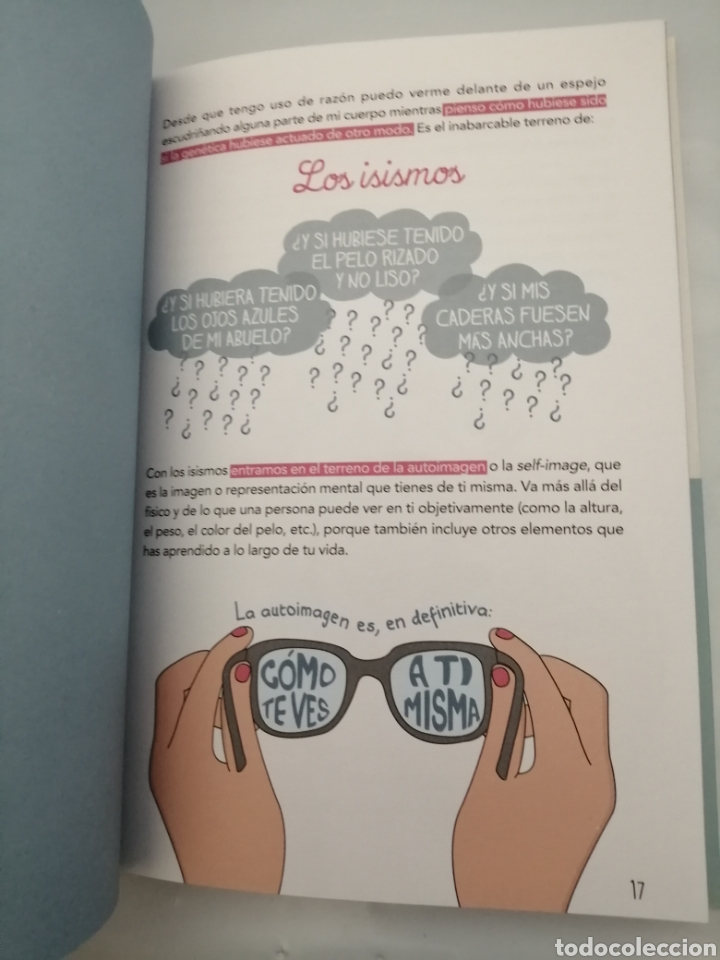 Desde que tengo uso de razón puedo verme delante de un espejo
escudriñando alguna parte de mi cuerpo mientras pienso cómo hubiese sido
si la genética hubiese actuado de otro modo. Es el inabarcable terreno de:
Los isismos
¿Y SI HUBIERA TENIDO
LOS OJOS AZULES
DE MI ABUELO?
¿Y SI HUBIESE TENIDO
EL PELO RIZADO
Y NO LISO?
¿Y SI MIS
CADERAS FUESEN
MÁS ANCHAS?
Con los isismos entramos en el terreno de la autoimagen o la self-image, que
es la imagen o representación mental que tienes de ti misma. Va más allá del
físico y de lo que una persona puede ver en ti objetivamente (como la altura,
el peso, el color del pelo, etc.), porque también incluye otros elementos que
has aprendido a lo largo de tu vida.
La autoimagen es, en definitiva:
CÓMO
TE VES
A TI
MISMA
17
todocoleccion